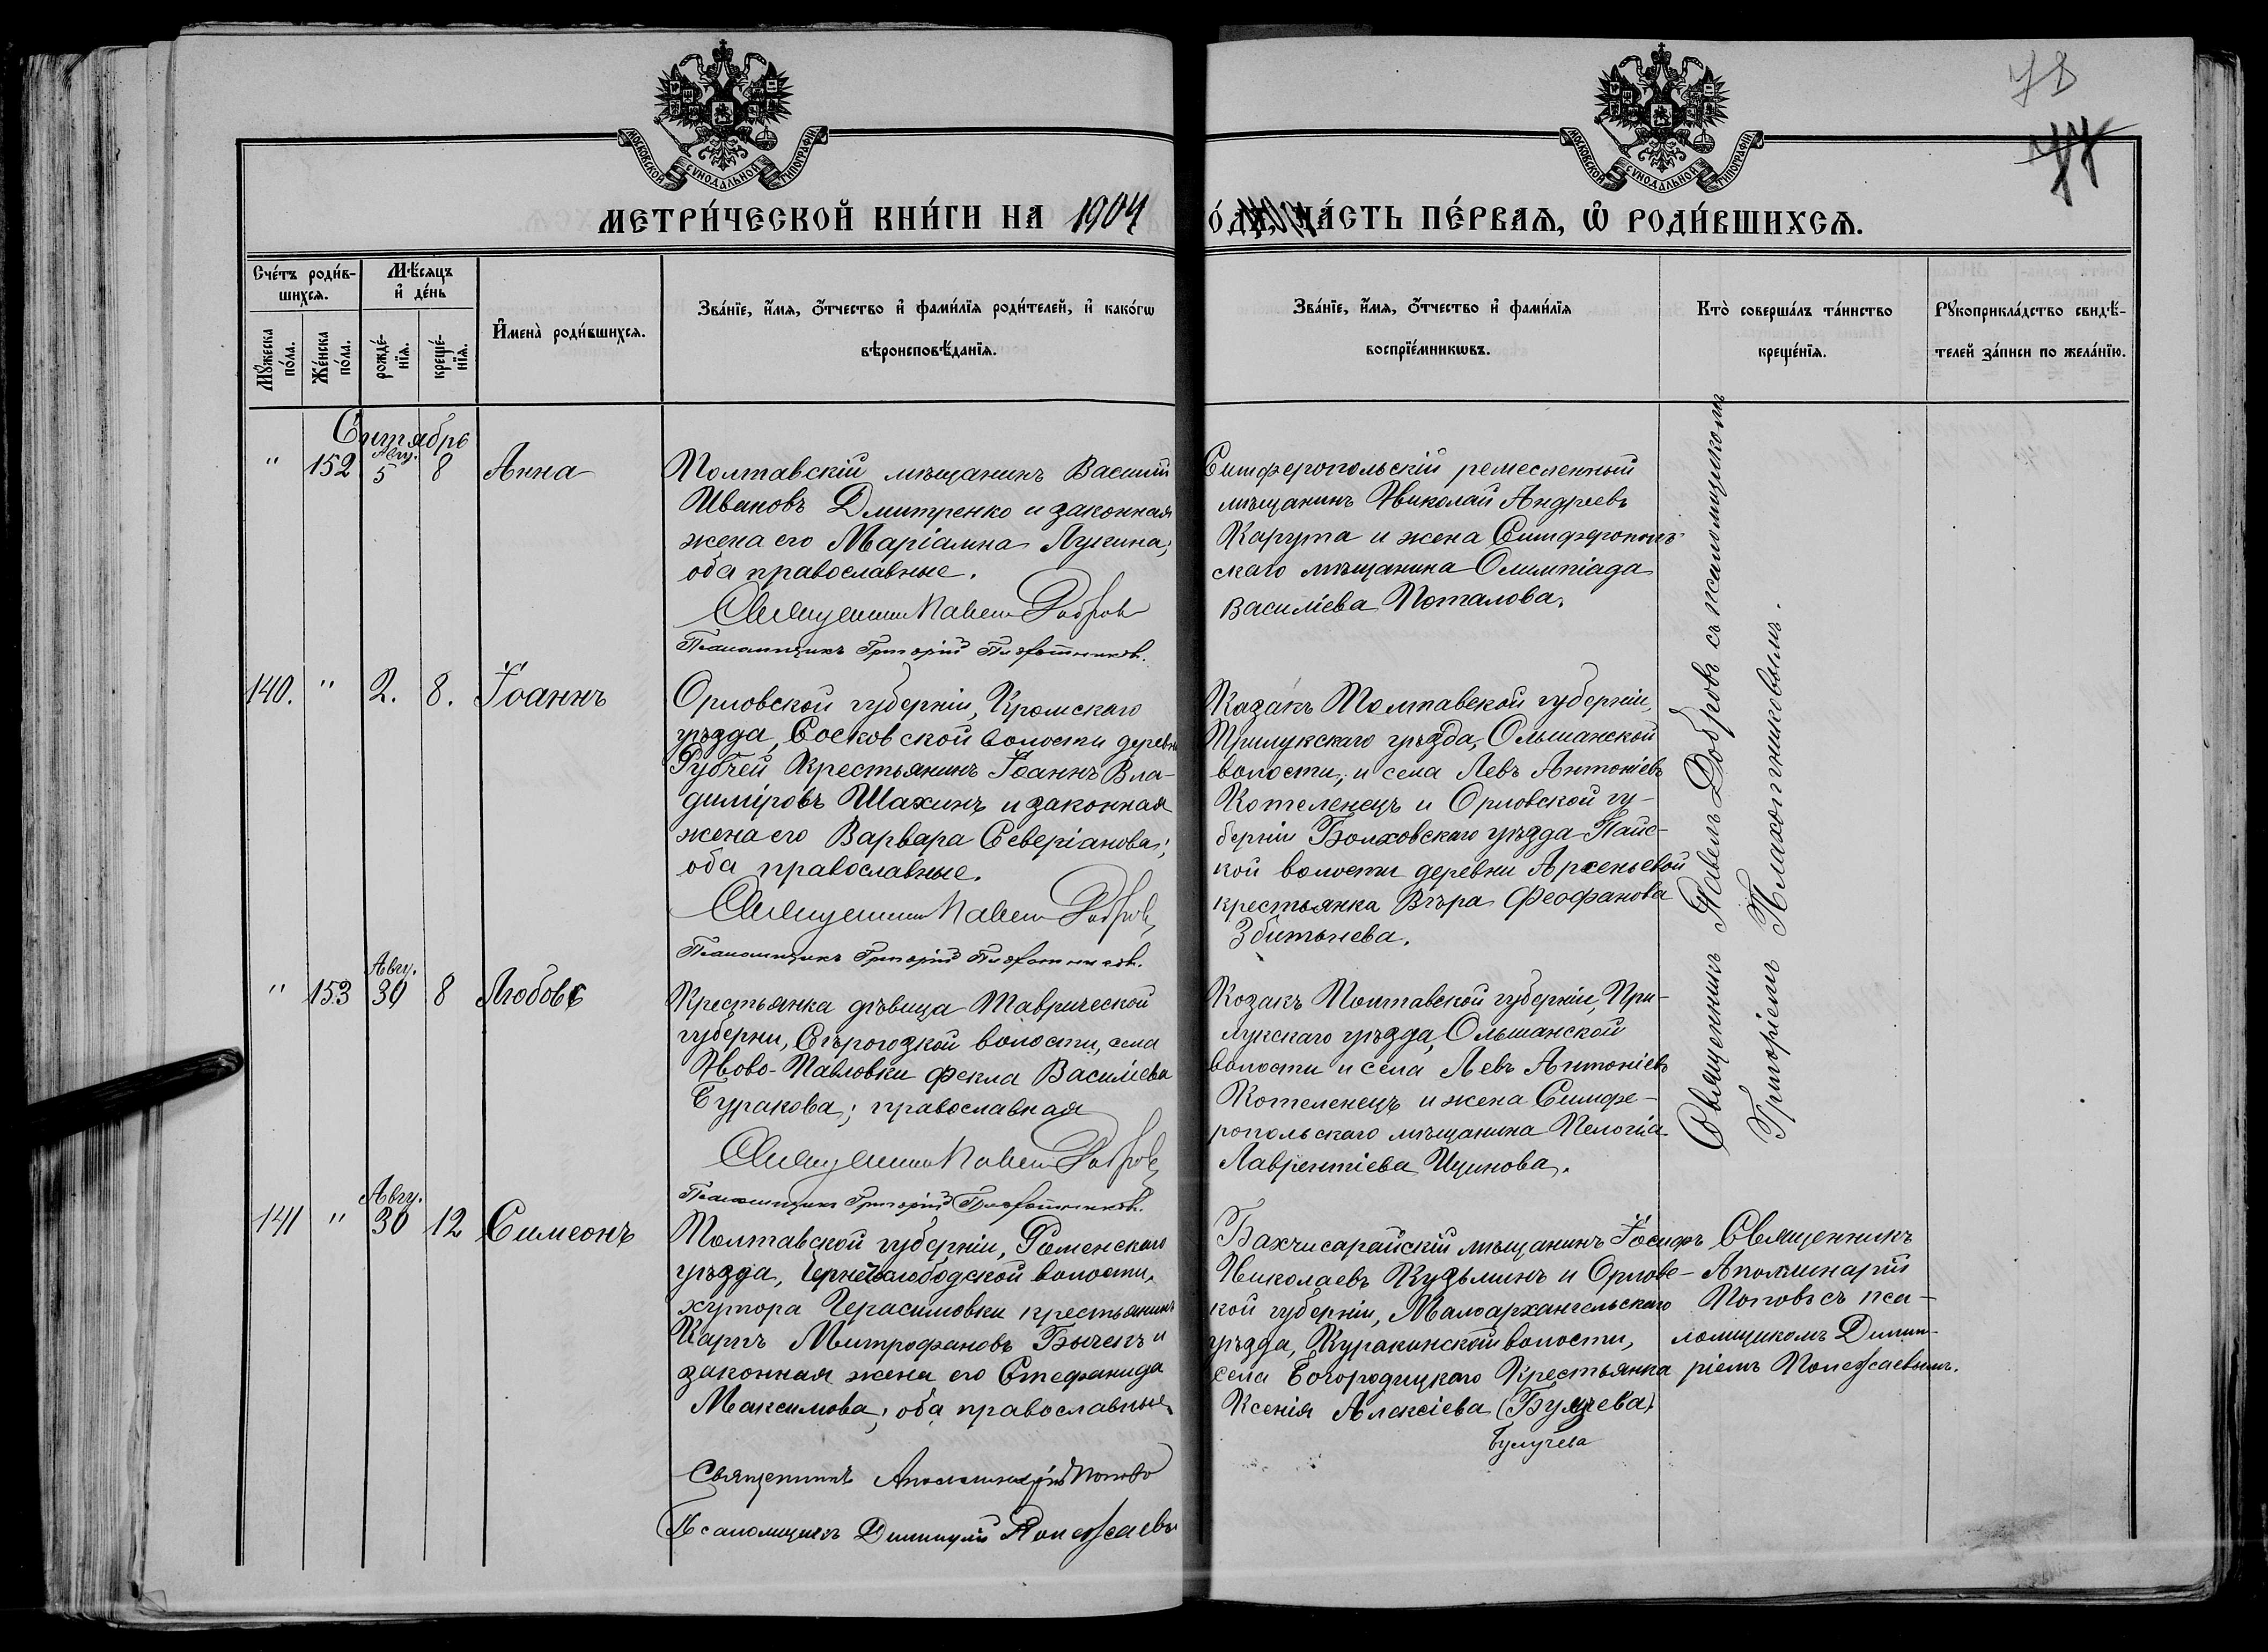 78
77
МОСКОВСКОЙ СѴНОДАЛЬНОЙ ТИПОГРАФІИ
МОСКОВСКОЙ СѴНОДАЛЬНОЙ ТИПОГРАФІИ
МЕТРИ́ЧЕСКОЙ КНИ́ГИ НА 1904
О́ДЪ, ЧА́СТЬ ПЕ́РВАѦ, Ѡ РОДИ́ВШИХСѦ.
Сче́тъ роди́в-
шихсѧ.
Мꙋ́жеска по́ла.
Же́нска по́ла.
Мѣ́сѧцъ
и҆ де́нь
рожде́-
нїѧ.
креще́-
нїѧ.
И҆мена̀ роди́вшихсѧ.
Зва́нїе, и҆́мѧ, ѻ҆́тчество и҆ фами́лїѧ роди́телей, и҆ како́гѡ
вѣроисповѣ́данїѧ.
Зва́нїе, и҆́мѧ, ѻ҆́тчество и҆ фами́лїѧ
воспрїе́мникѡвъ.
Кто̀ соверша́лъ та́инство
креще́нїѧ.
Рꙋкоприкла́дство свидѣ́-
телей за́писи по жела́нїю.
Сентябрь
" 152 Авгу. 5 8 Анна
Полтавскій мѣщанинъ Василій
Ивановъ Дмитренко и законная
жена его Маріамна Лукина;
оба православные.
Священникъ Павелъ Добровъ
Псаломщикъ Григорій Плахотниковъ.
Симферопольскій ремесленный
мѣщанинъ Николай Андреевъ
Карута и жена Симферополь-
скаго мѣщанина Олимпіада
Василіева Поталова.
140. " 2. 8. Іоаннъ
Орловской губерніи, Кромскаго
уѣзда, Сосковской волости деревни
Рубчей крестьянинъ Іоаннъ Вла-
диміровъ Шахинъ и законная
жена его Варвара Северіанова;
оба православные.
Священникъ Павелъ Добровъ
Псаломщикъ Григорій Плахотниковъ.
Казакъ Полтавской губерніи,
Прилукскаго уѣзда, Ольшанской
волости, и села Левъ Антоніевъ
Котеленецъ и Орловской гу-
берніи Болховскаго уѣзда Пайс-
кой волости деревни Арсеньевой
крестьянка Вѣра Феофанова
Збитнева.
" 153 Авгу. 30 8 Любовь
Крестьянка дѣвица Таврической
губерни, Сѣрогозкой волости, села
Ново-Павловки Фекла Василіева
Буракова; православная
Священникъ Павелъ Добровъ
Псаломщикъ Григорій Плахотниковъ.
Козакъ Полтавской губерніи, При-
лукскаго уѣзда, Ольшанской
волости и села Левъ Антоніевъ
Котеленецъ и жена Симфе-
ропольскаго мѣщанина Пелагіа
Лаврентіева
Священникъ Павелъ Добровъ съ псаломщикомъ
Григоріемъ Плахотниковымъ.
141 " Авгу. 30 12 Симеонъ
Полтавской губерніи, Роменскаго
уѣзда, Чернеслободской волости,
хутора Герасимовки крестьянинъ
Карпъ Митрофановъ Быченъ и
законная жена его Стефанида
Максимова; оба православные
Священникъ Аполлинарій Поповъ
Псаломщикъ Димитрій Полежаевъ
Бахчисарайскій мѣщанинъ Іосифъ
Николаевъ Кузьминъ и Орловс-
кой губерніи, Малоархангельскаго
уѣзда, Куракинской волости,
села Богородицкаго Крестьянка
Ксенія Алексіева (Булычева)
Булучева
Священникъ
Аполлинарій
Поповъ съ пса-
ломщикомъ Димит-
ріемъ Полежаевымъ.